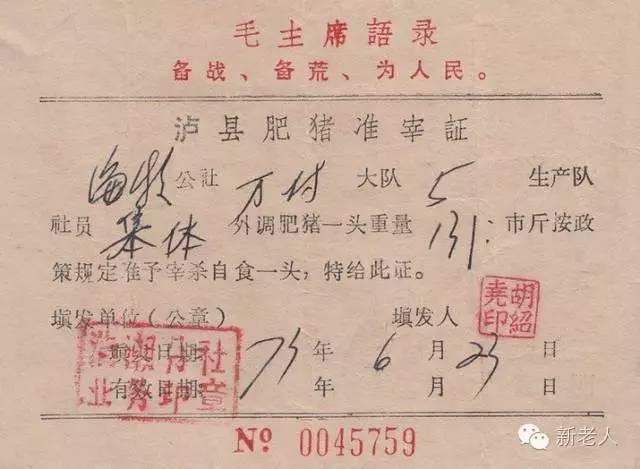 毛主席語录
备战、备荒、为人民。
泸县肥猪准宰証
海潮公社 万村 大队 5 生产队
社员 集体 外调肥猪一头重量 131: 市斤按政
策規定准予宰杀自食一头，特给此証。
填发单位（公章） 填发人 胡紹尭印
填发日期: 75 年 6 月 23 日
有效日期: 年 月 日
№ 0045759
新老人